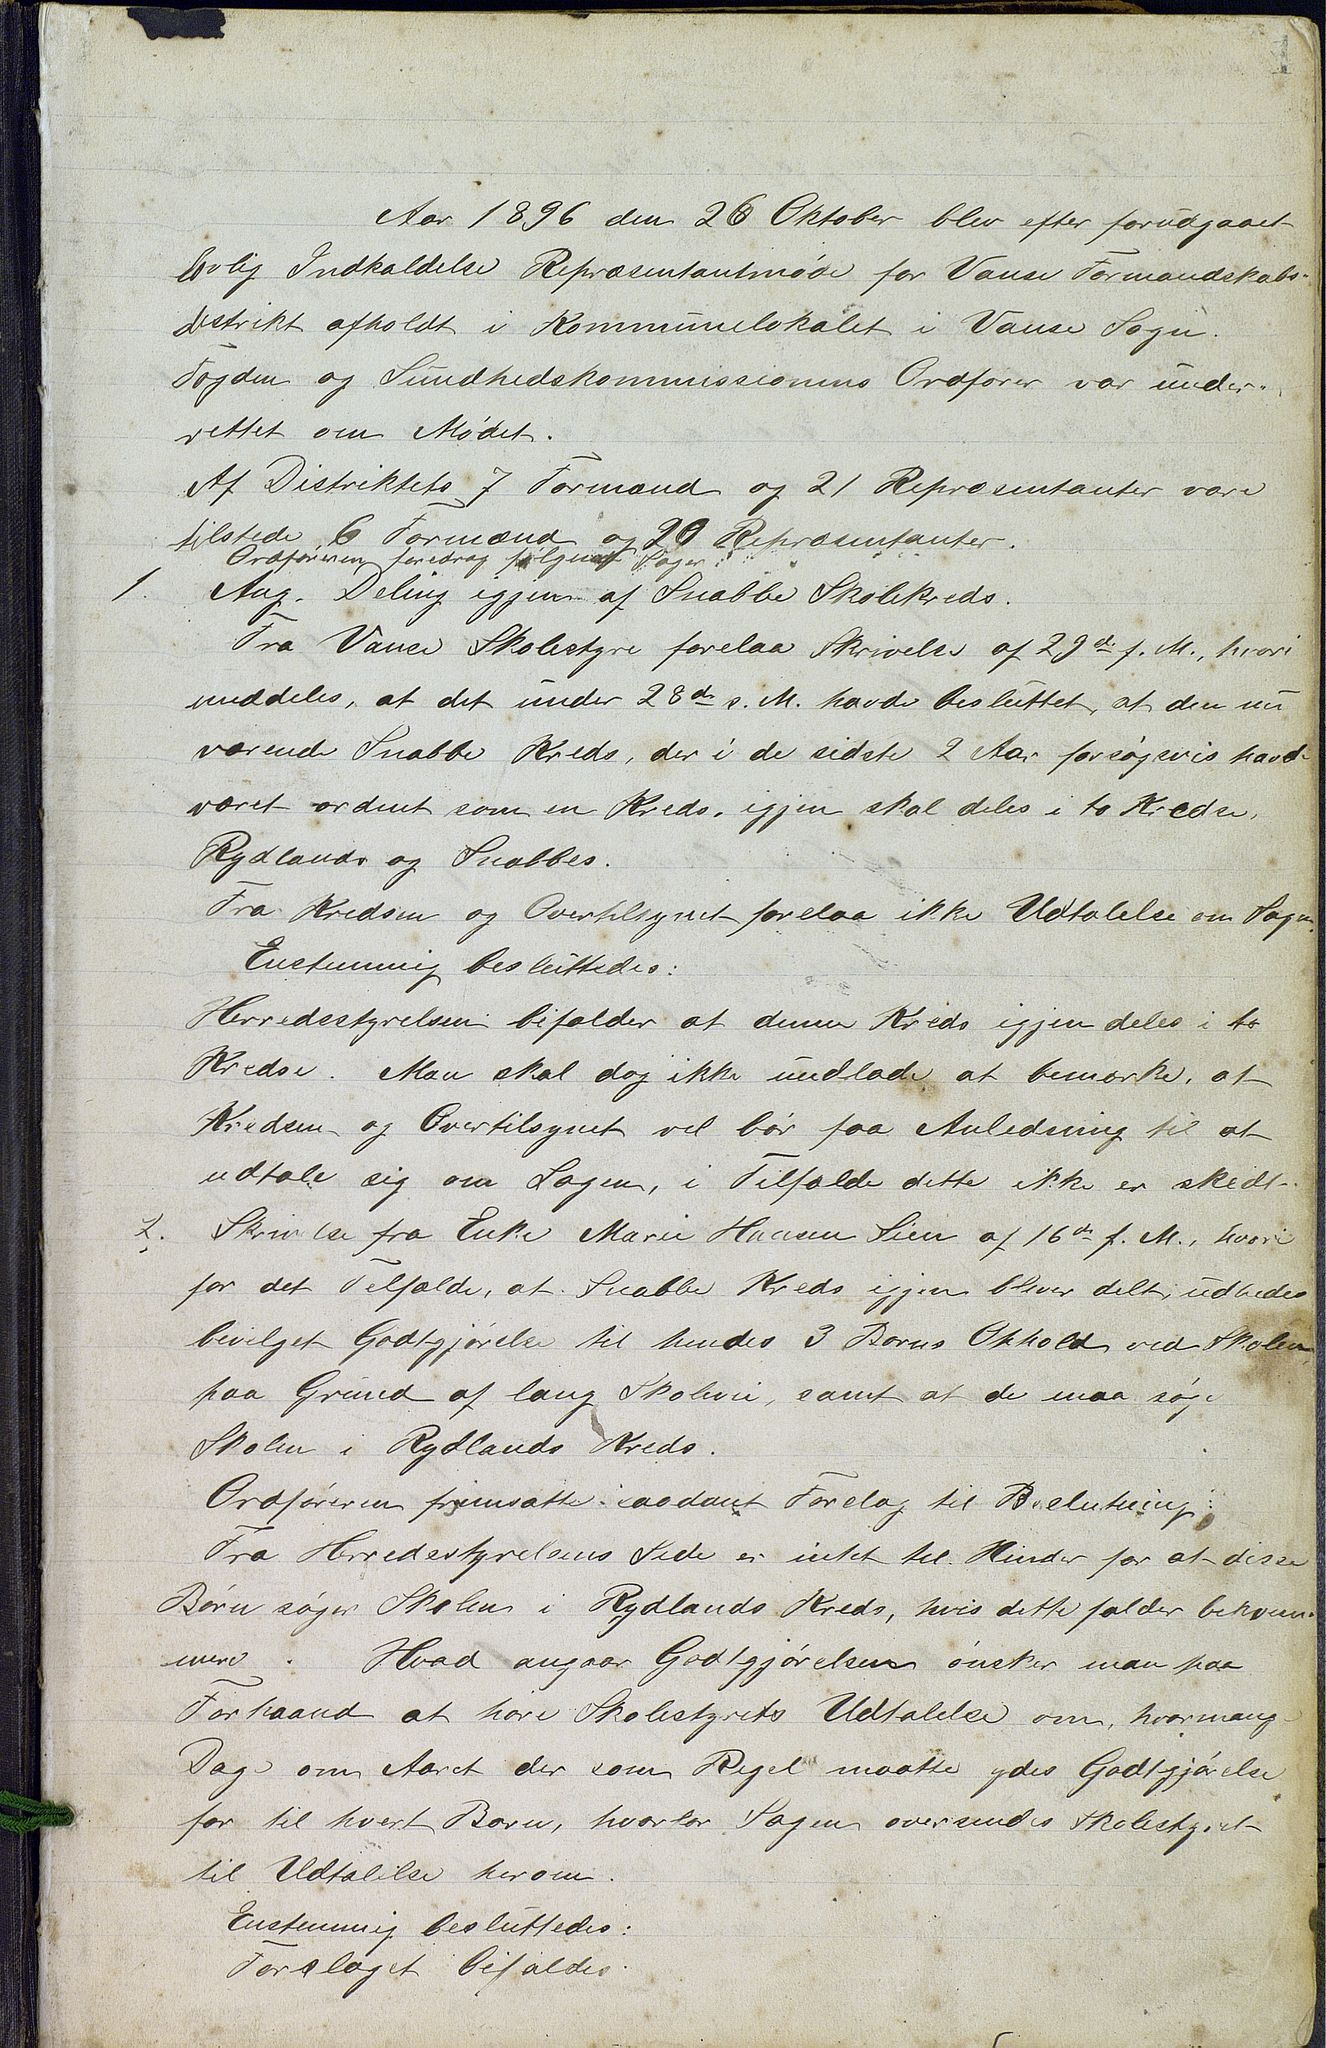 1
Aar 1896 den 26 Oktober blev efter forudgaaet
lovlig Indkaldelse Repræsentantmøde for Vanse Formandskabs-
distrikt afholdt i Kommunelokalet i Vanse Sogn.
Fogden og Sundhedskommissionens Ordfører var under-
rettet om Mødet.
Af Distriktets 7 Formænd og 21 Repræsentanter vare
tilstede 6 Formænd og 20 Repræsentanter.
Ordføreren foredrog følgende Sager:
1. Ang. Deling igjen af Snabbe Skolekreds.
Fra Vanse Skolestyre forelaa Skrivelse af 29de f. M., hvori
meddeles, at det under 28de s. M. havde besluttet, at den nu
værende Snabbe Kreds, der i de sidste 2 Aar forsøgsvis havde
været ordnet som en Kreds, igjen skal deles i to Kredse,
Rydlands og Snabbes.
Fra Kredsen og Overtilsynet forelaa ikke Udtalelse om Sagen.
Enstemmig besluttedes:
Herredsstyrelsen bifalder at denne Kreds igjen deles i to
Kredse. Man skal dog ikke undlade at bemærke, at
Kredsen og Overtilsynet vel bør faa Anledning til at
udtale sig om Sagen, i Tilfælde dette ikke er skedt.
2. Skrivelse fra Enke Marie Hansen Lien af 16de f. M., hvori
for det Tilfælde, at Snabbe Kreds igjen bliver delt, udbedes
bevilget Godtgjørelse til hendes 3 Børns Ophold ved Skolen,
paa Grund af lang Skolevei, samt at de maa søge
Skolen i Rydlands Kreds.
Ordføreren fremsatte saadant Forslag til Beslutning:
Fra Herredsstyrelsens Side er intet til Hinder for at disse
Børn søger Skolen i Rydlands Kreds, hvis dette falder bekvem-
mere. Hvad angaar Godtgjørelsen ønsker man paa
Forhaand at høre Skolestyrets Udtalelse om, hvormange
Dage om Aaret der som Regel maatte ydes Godtgjørelse
for til hvert Barn, hvorfor Sagen oversendes Skolestyret
til Udtalelse herom.
Enstemmig besluttedes:
Forslaget bifaldes.